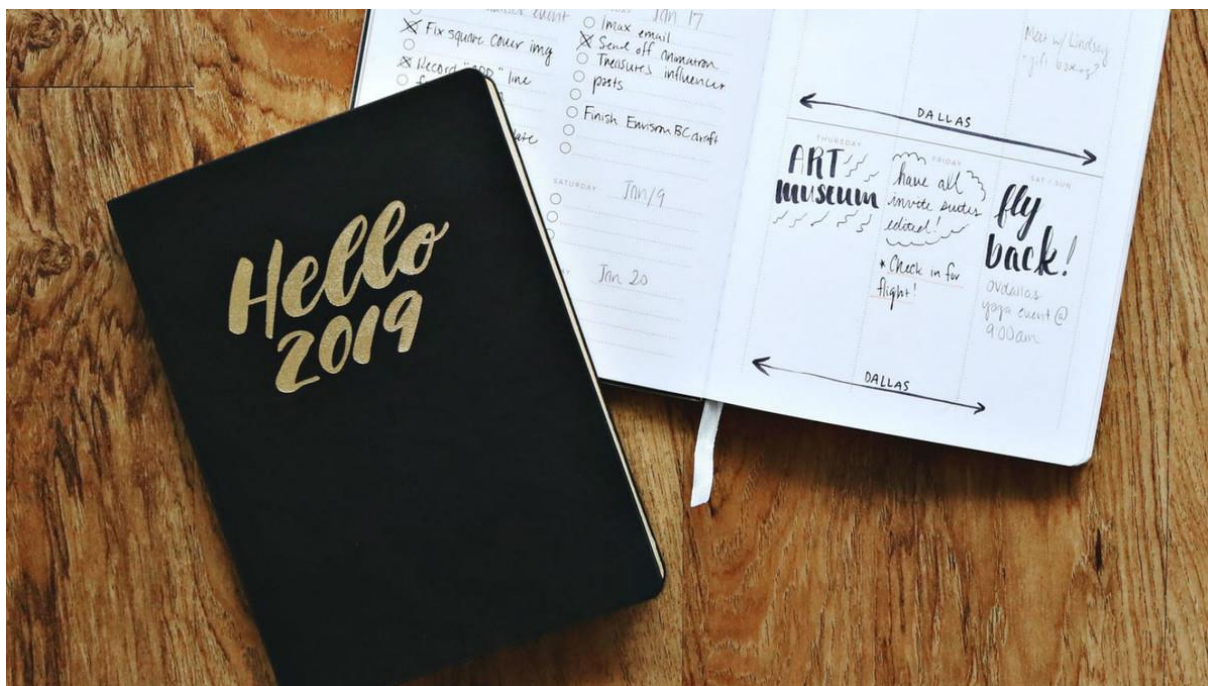 Hello
2019
event
Fix square cover img
Record
line
Jan 17
Imax email
Send off animatron
Treasures influencer
posts
Finish Envision BC draft
SATURDAY
Jan/9
Jan 20
Meet w/ Lindsay
gift boxes?
DALLAS
THURSDAY
ART
museum
FRIDAY
have all
invite suites
edited!
* Check in for
flight!
SAT / SUN
fly
back!
ovdallas
yoga event @
9:00am
DALLAS